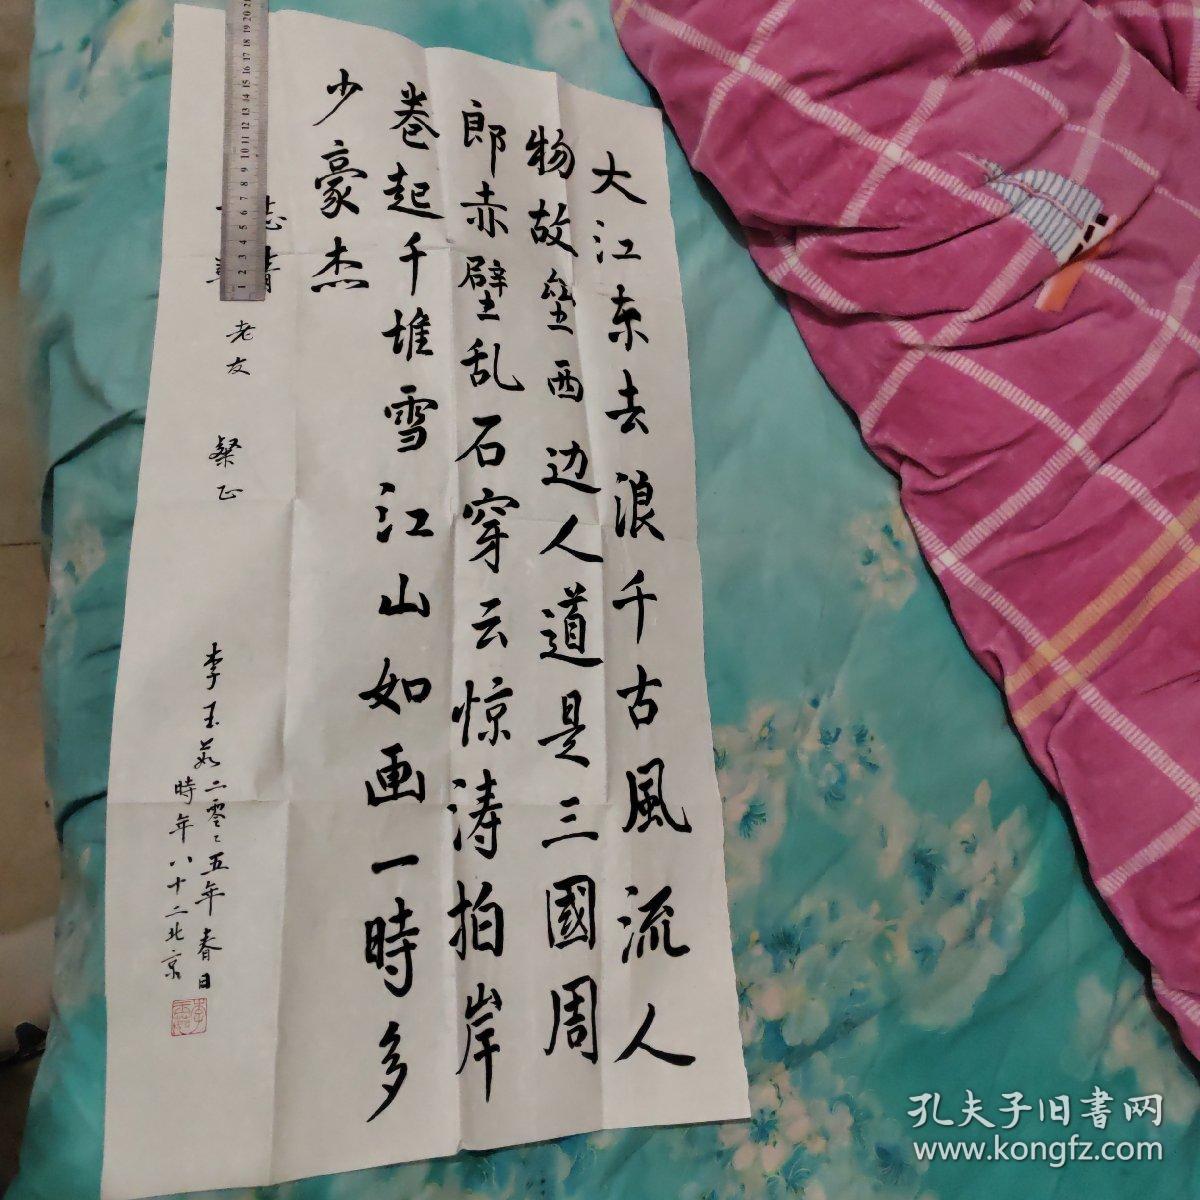 大江东去浪千古風流人
物故垒西边人道是三國周
郎赤壁乱石穿云惊涛拍岸
卷起千堆雪江山如画一時多
少豪杰
老友 粲正
李玉茹二零零五年春日
時年八十二北京
孔夫子旧書网
www.kongfz.com